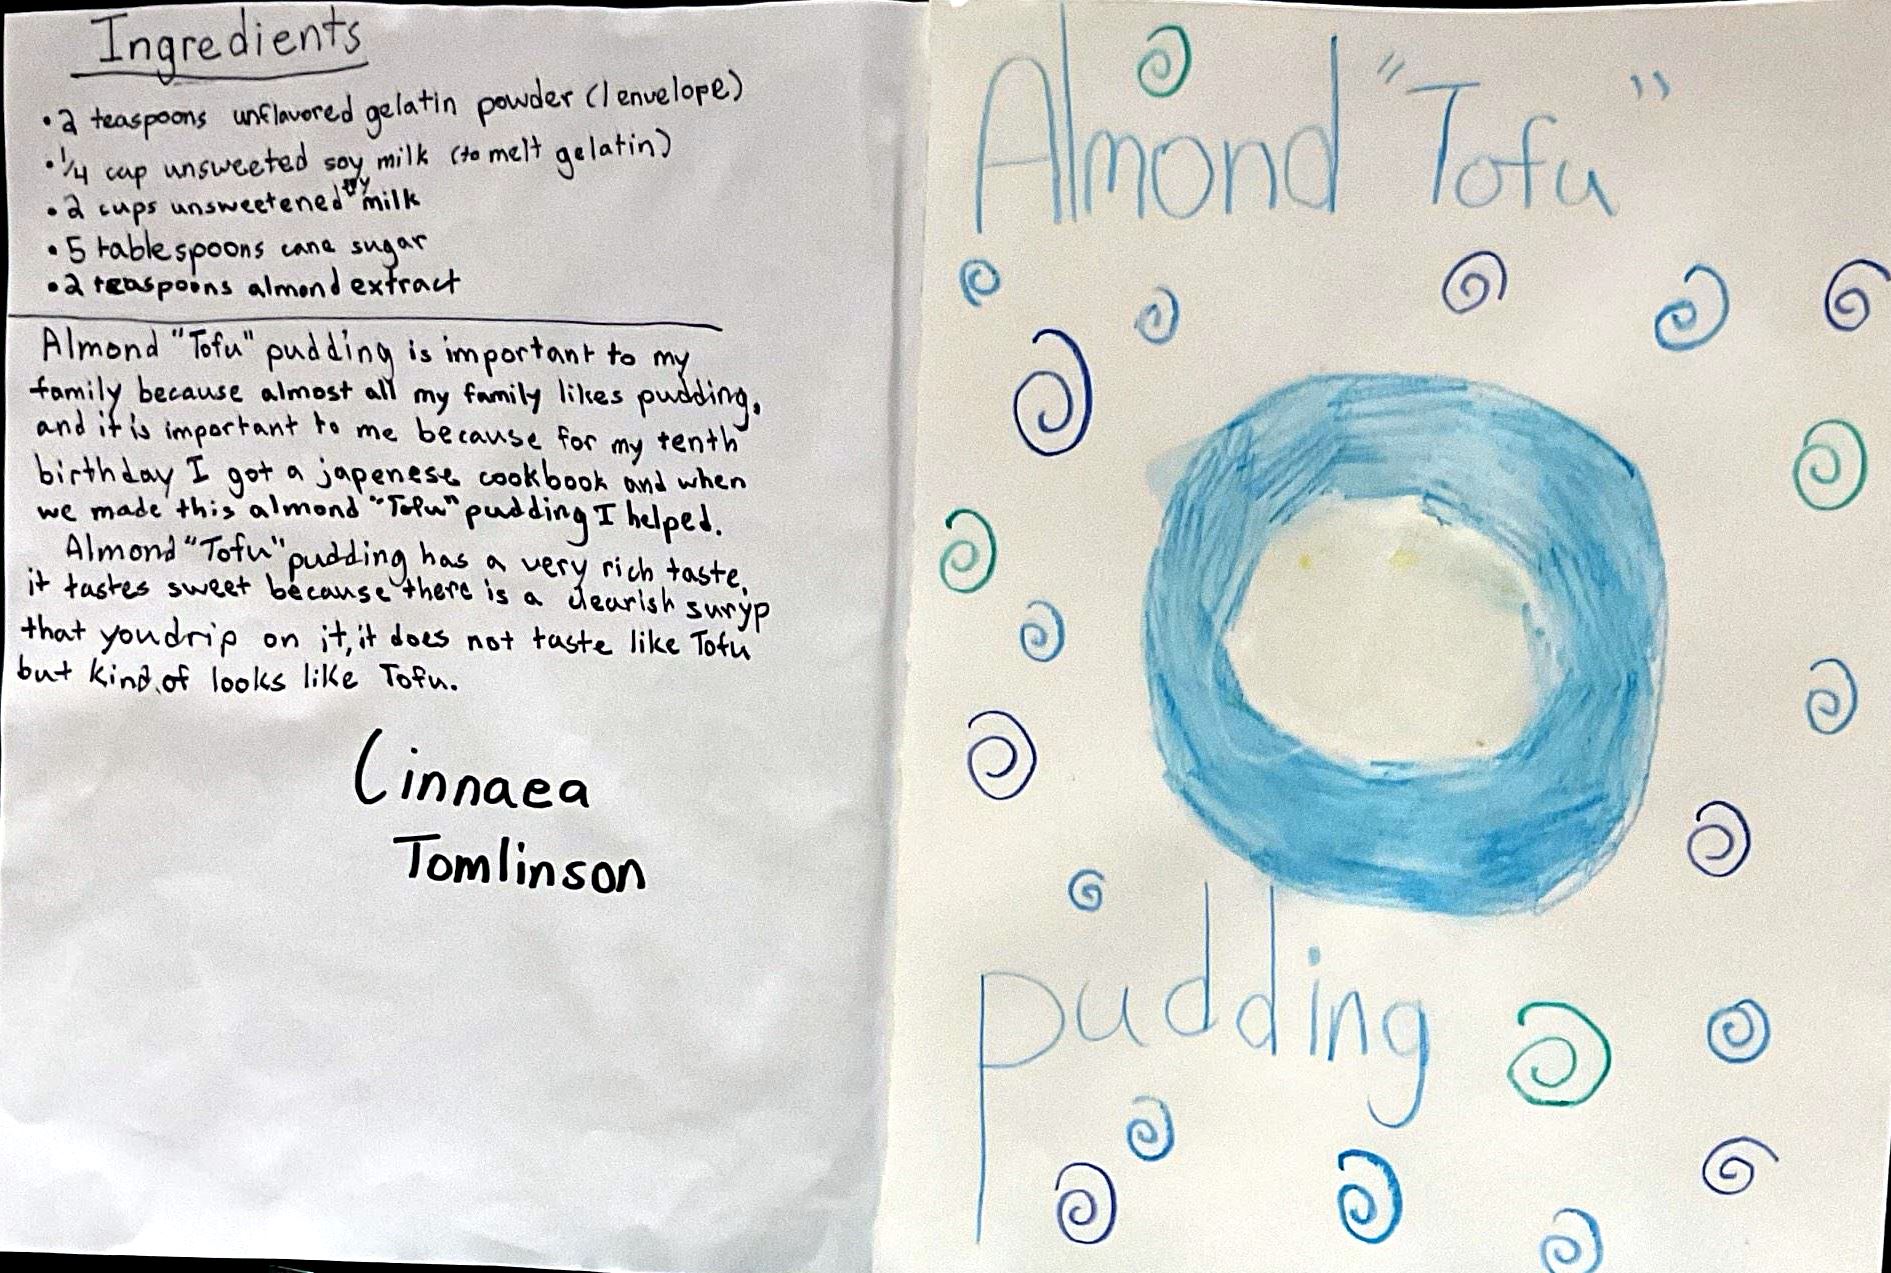 Ingredients
• 2 teaspoons unflavored gelatin powder (1 envelope)
• 1/4 cup unsweeted soy milk (to melt gelatin)
• 2 cups unsweetened soy milk
• 5 tablespoons cane sugar
• 2 teaspoons almond extract
Almond "Tofu" pudding is important to my
family because almost all my family likes pudding,
and it is important to me because for my tenth
birthday I got a japenese cookbook and when
we made this almond "Tofu" pudding I helped.
Almond "Tofu" pudding has a very rich taste,
it tastes sweet because there is a clearish suryp
that you drip on it, it does not taste like Tofu
but kind of looks like Tofu.
Linnaea
Tomlinson
Almond "Tofu"
pudding